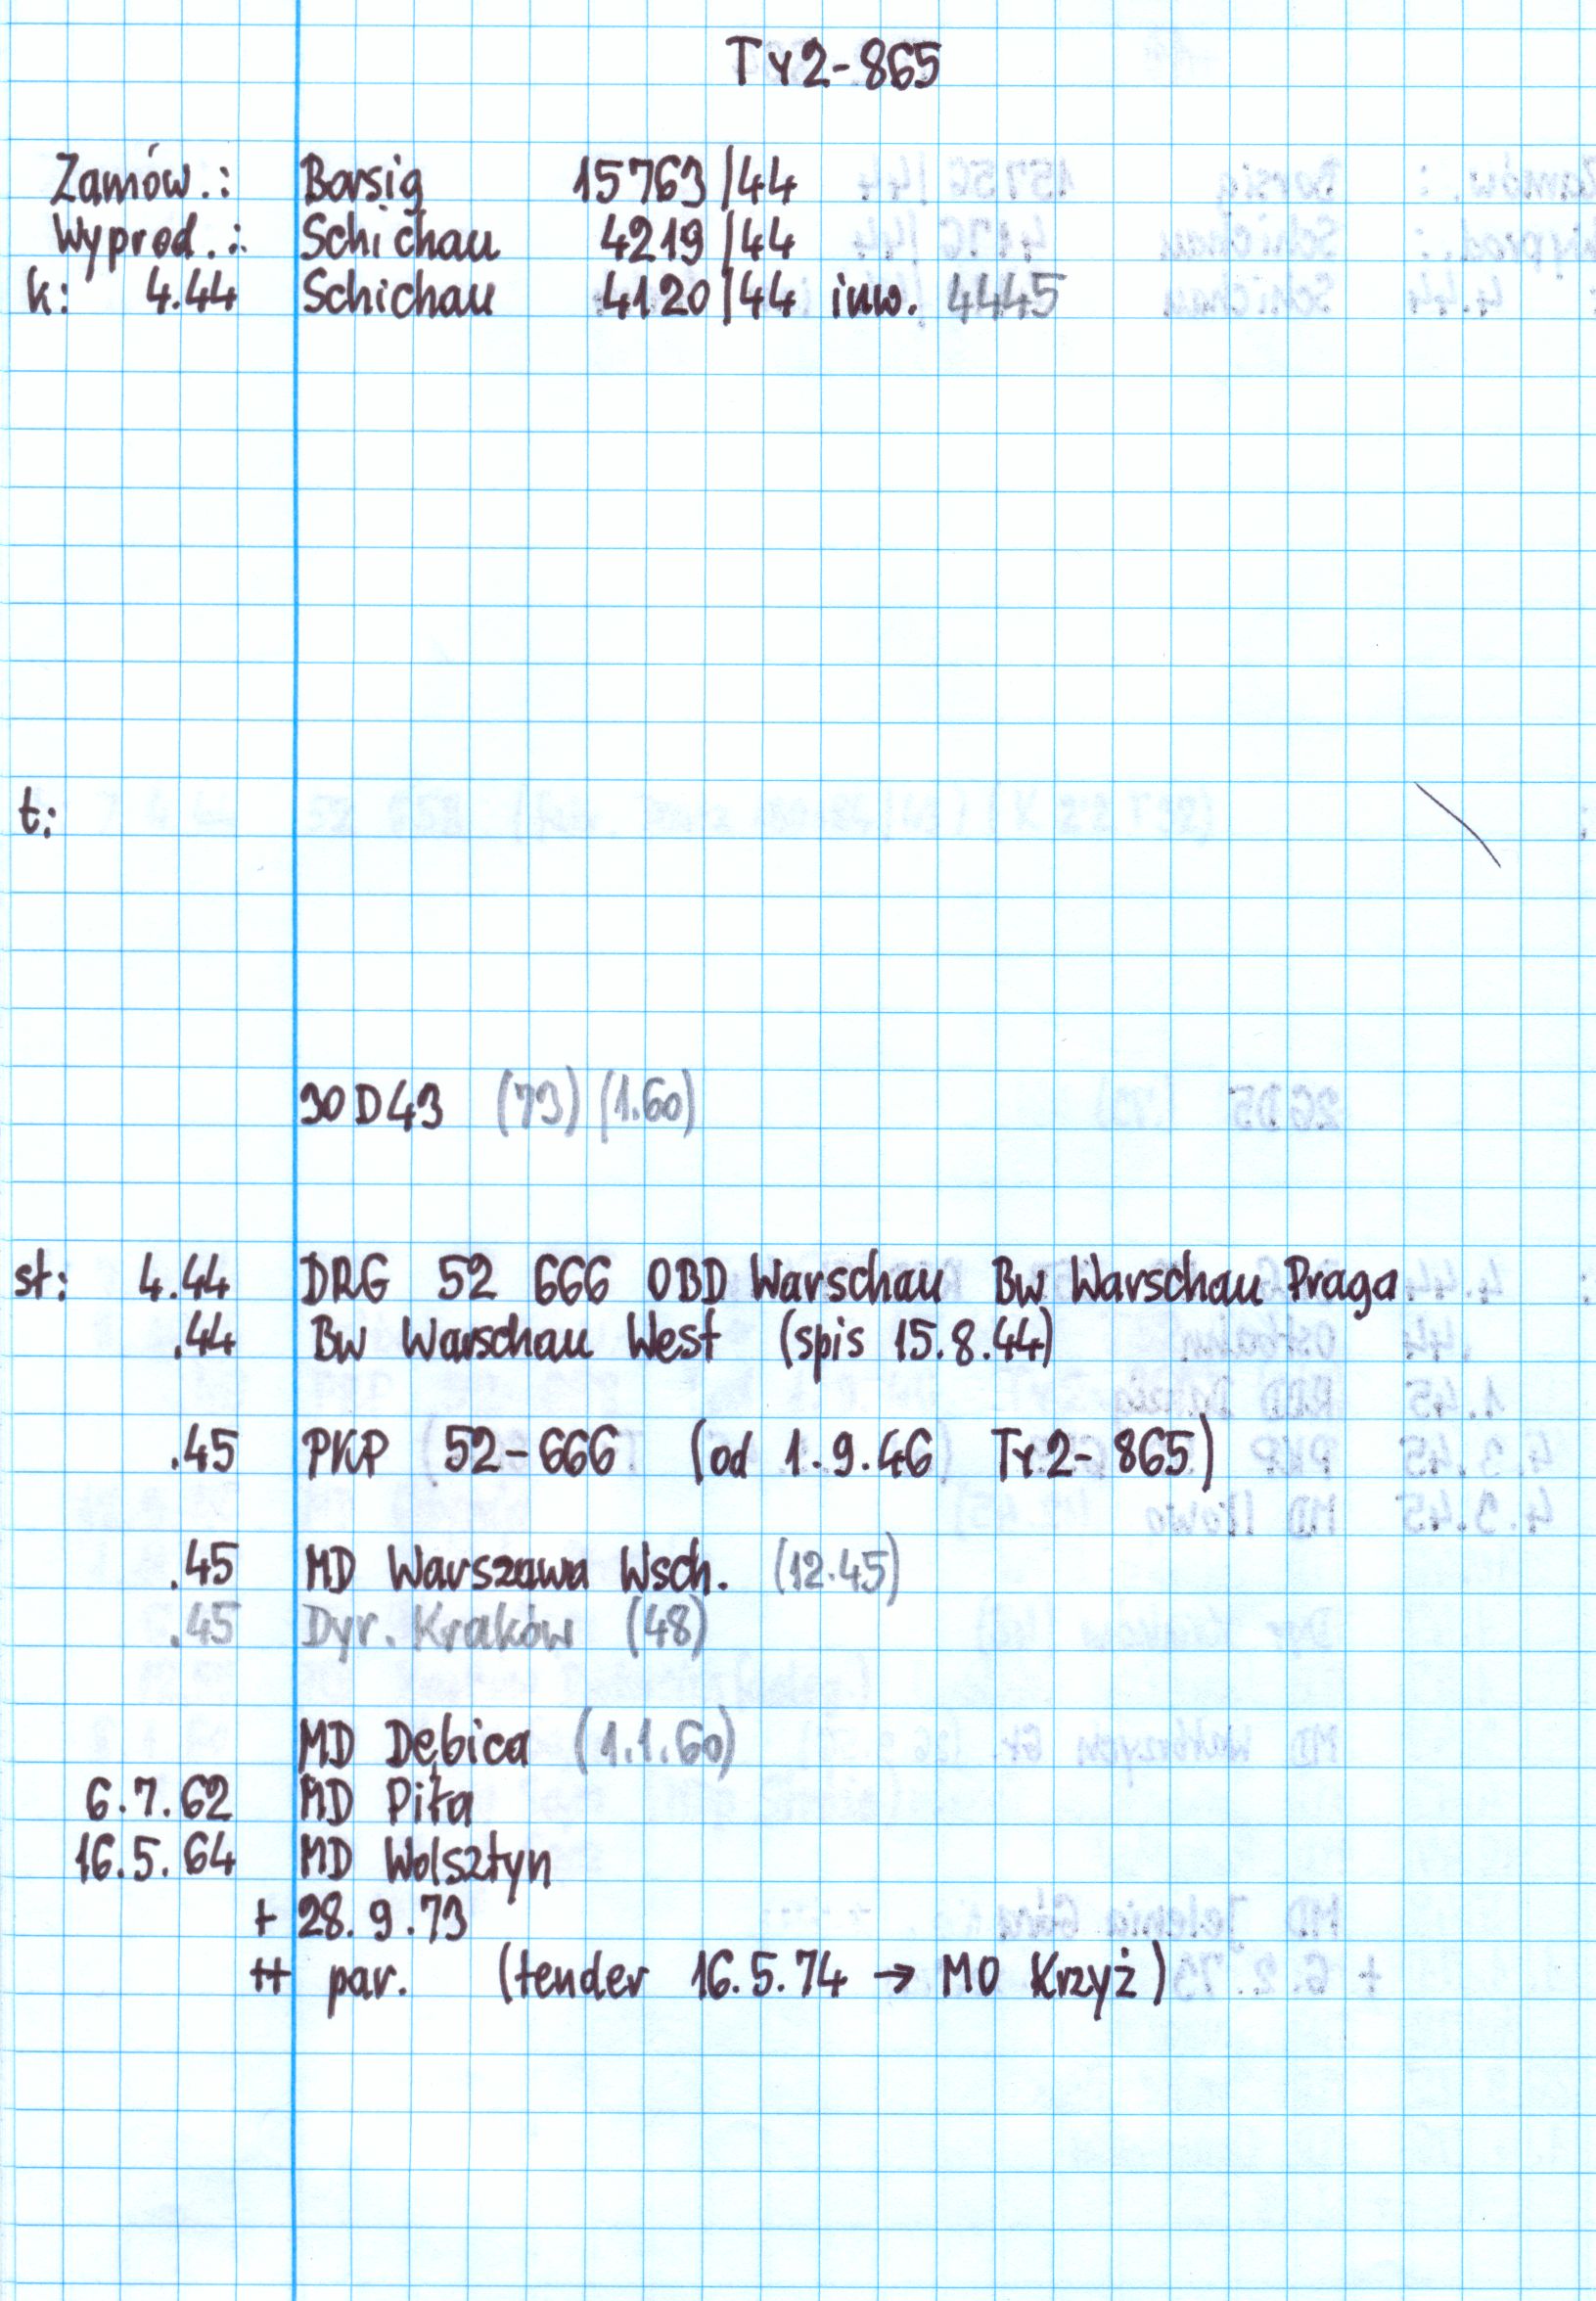 Ty2-865
Zamów.: Borsig 15763/44
Wyprod.: Schichau 4219/44
k: 4.44 Schichau 4120/44 inw. 4445
t:
30D43 (73) (1.60)
st: 4.44 DRG 52 666 OBD Warschau Bw Warschau Praga
.44 Bw Warschau West (spis 15.8.44)
.45 PKP 52-666 (od 1.9.46 Ty2-865)
.45 MD Warszawa Wsch. (12.45)
.45 Dyr. Kraków (48)
MD Dębica (1.1.60)
6.7.62 MD Piła
16.5.64 MD Wolsztyn
+ 28.9.73
++ par. (tender 16.5.74 → MO Krzyż)